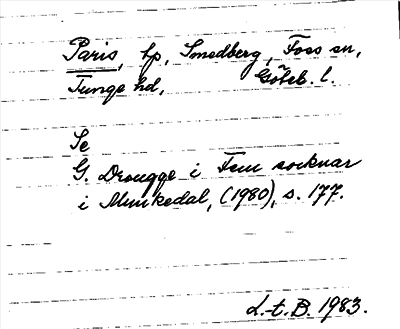 Paris, hp, Smedberg, Foss sn,
Tunge hd, Göteb. l.
Se
G. Drougge i Fem socknar
i Munkedal, (1980), s. 177.
L.-t. B. 1983.